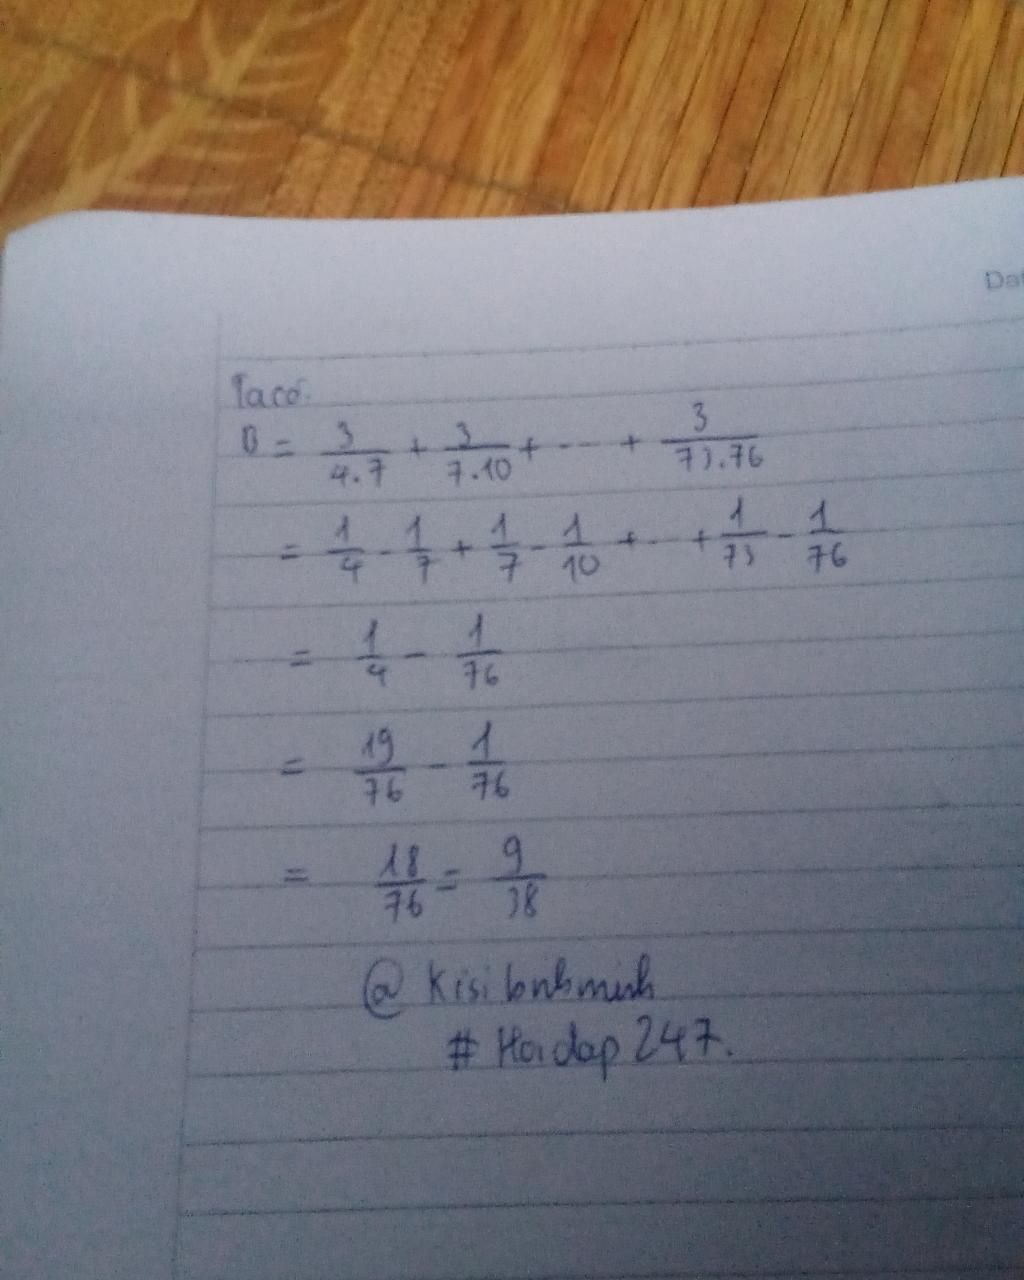 Dat
Ta có:
D = 3/4.7 + 3/7.10 + ... + 3/73.76
= 1/4 - 1/7 + 1/7 - 1/10 + ... + 1/73 - 1/76
= 1/4 - 1/76
= 19/76 - 1/76
= 18/76 = 9/38
@ Kisi
# Hoidap 247.